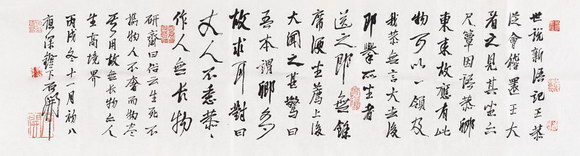 世說新語記王恭
從會稽還王大
看之見其坐六
尺簟因語恭卿
東來故應有此
物可以一領及
我恭無言大去後
即舉所坐者
送之既無餘
席便坐薦上後
大聞之甚驚曰
吾本謂卿多
故求耳對曰
丈人不悉恭恭
作人無長物
俗云生死不
物人不奢而物盡
其用故無長物亦人
生高境界
丙戌冬十二月初八